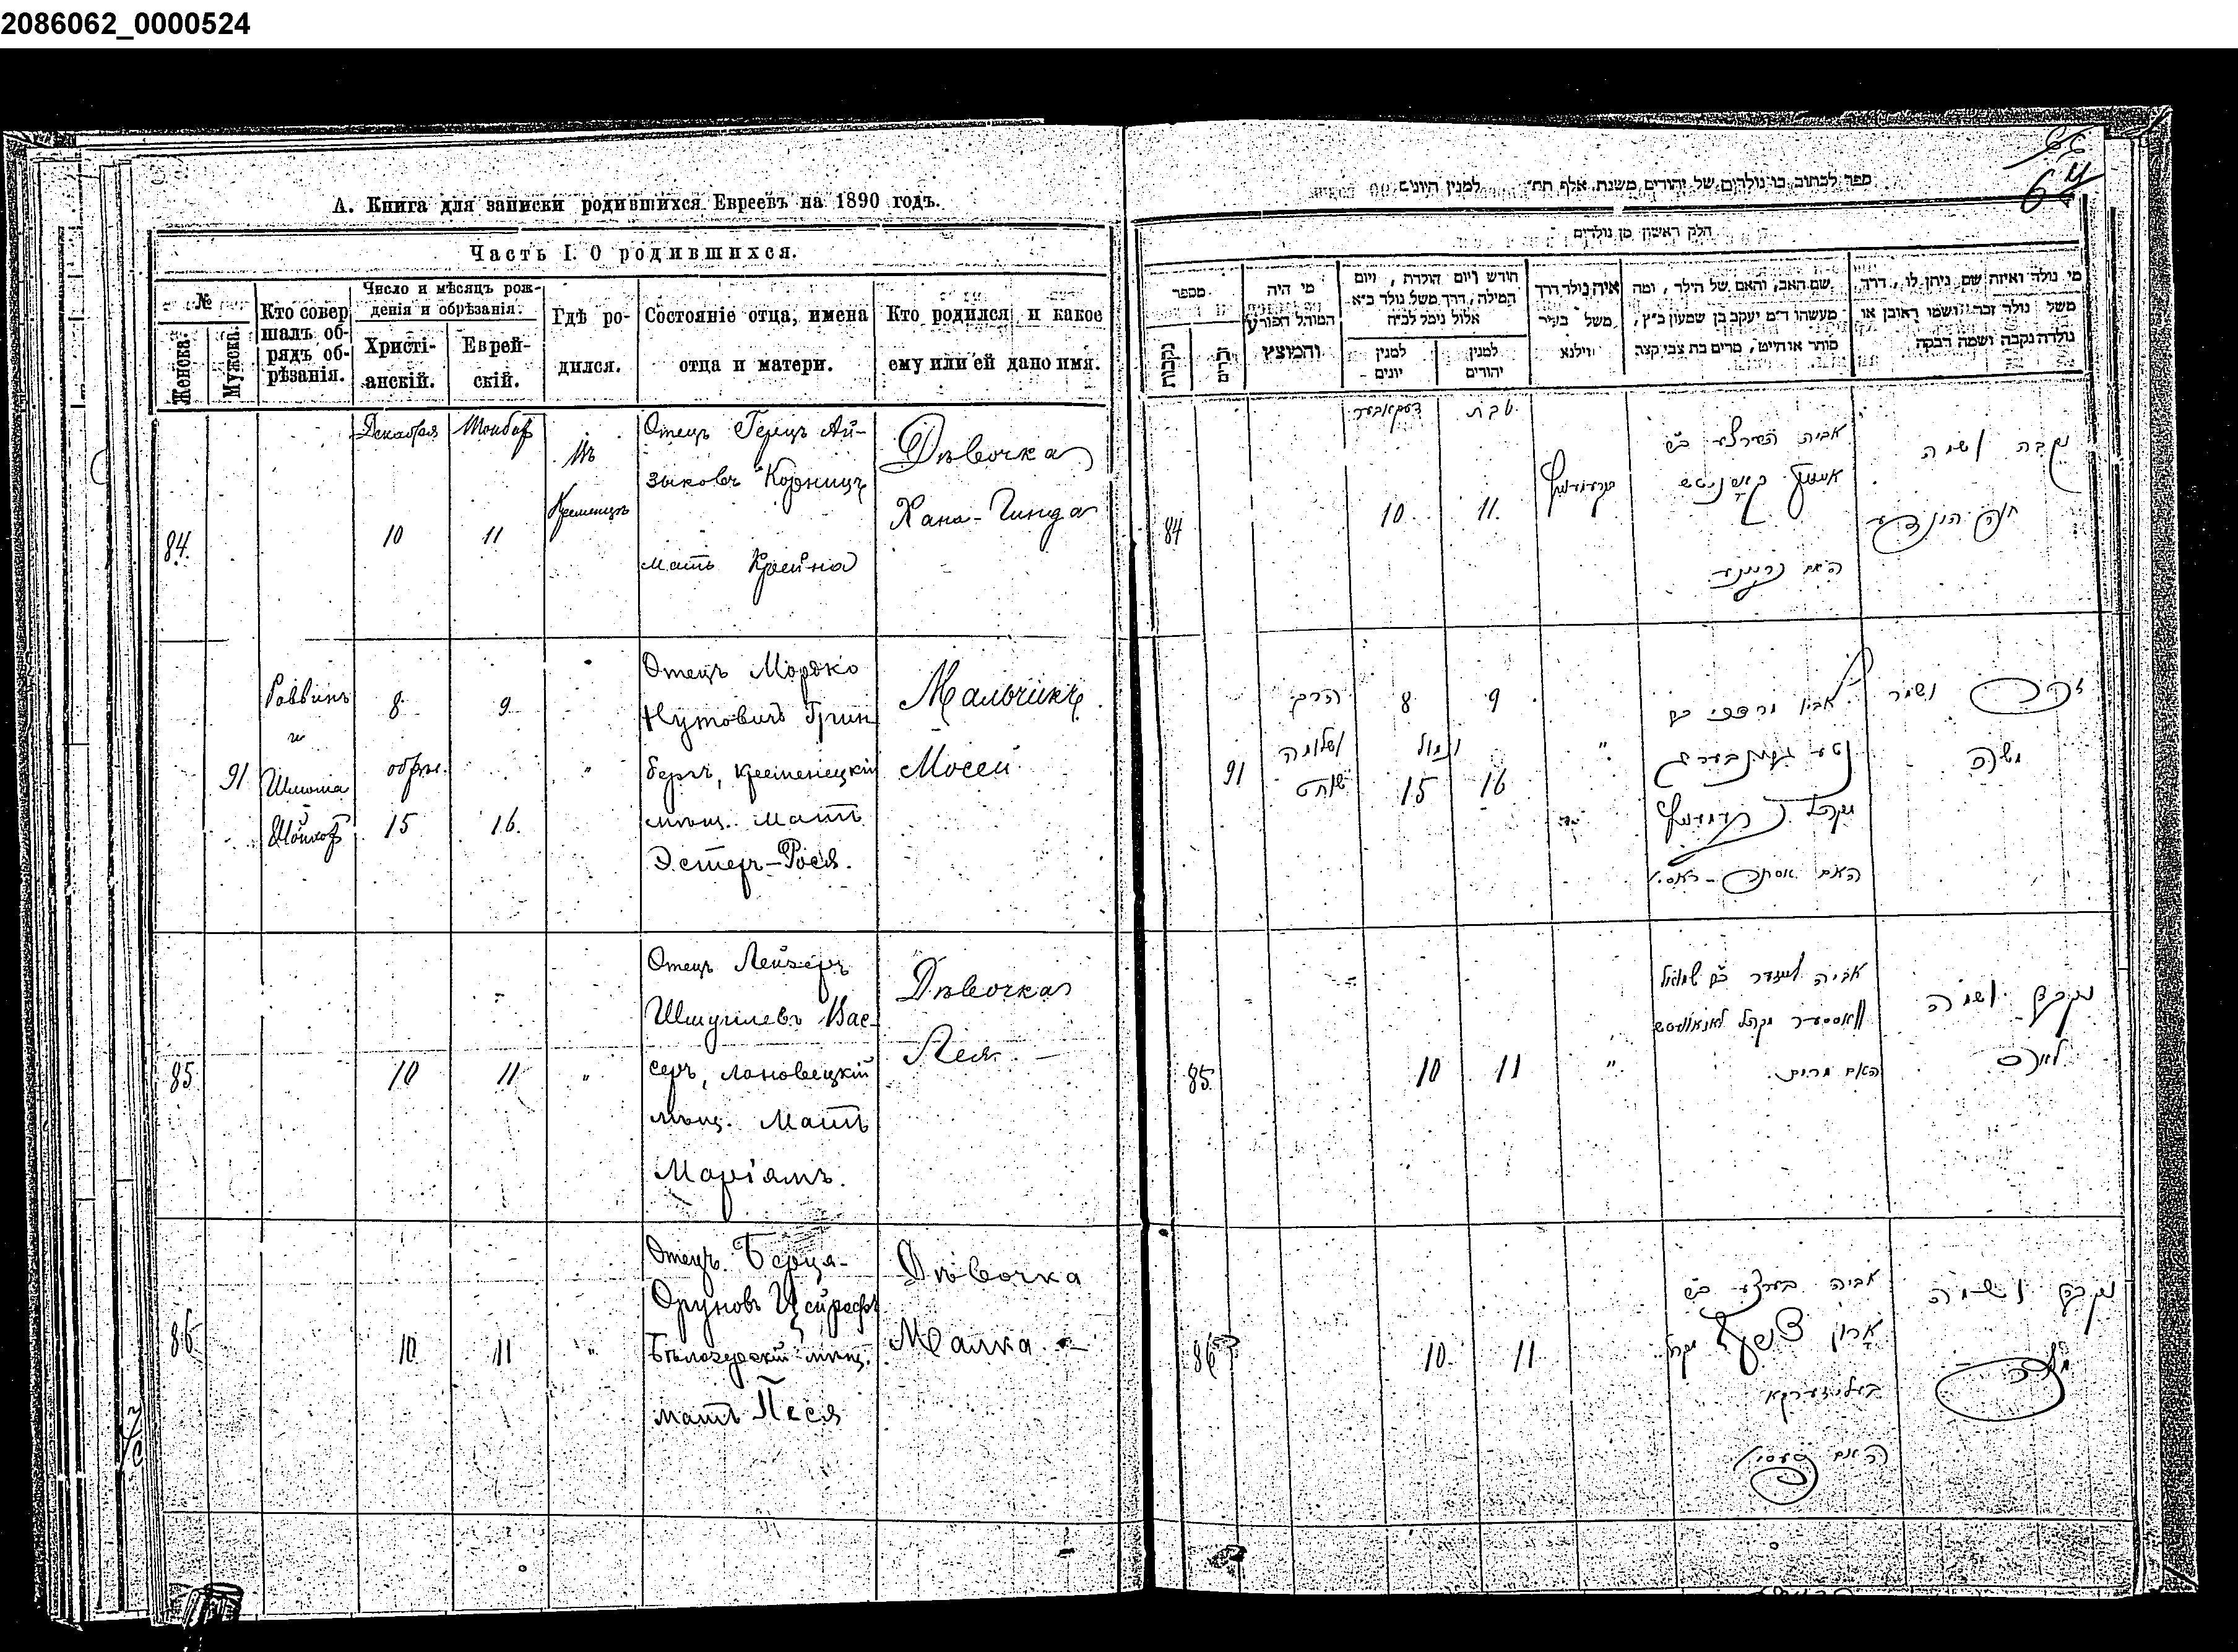 2086062_0000524
А. Книга для записки родившихся Евреевъ на 1890 годъ.
Часть I. О родившихся.
№
Женска.
Мужска.
Кто совер
шалъ об-
рядъ об-
рѣзанія.
Число и мѣсяцъ рож-
денія и обрѣзанія.
Христі-
анскій.
Еврей-
скій.
Гдѣ ро-
дился.
Состояніе отца, имена
отца и матери.
Кто родился и какое
ему или ей дано имя.
84.
Декабря
10
11
Въ
Кременцѣ
Отецъ Герцъ Ай-
зыковъ
мать Крейна
Дѣвочка
Хана-Гинда
91
Раввинъ
и
Шлема
8
9
обрѣз.
15
16.
"
Отецъ Мордко
Нутовичъ Грин
бергъ, кременецкій
мѣщ. мать
Эстеръ-Рося.
Мальчикъ
Мосей
85
10
11
"
Отецъ Лейзеръ
Шмулевъ Вас-
серъ, лановецкій
мѣщ. Мать
Маріямъ.
Дѣвочка
Лея
86
10
11
"
Отецъ Берця-
Бѣлозерскій мѣщ.
мать Песя
Дѣвочка
Малка
ספר לכתוב בו נולדים של יהודים משנת אלף תת״ למנין היונים
64
חלק ראשון מן נולדים
מספר
נקבות
זכרים
מי היה
המוהל הפורע
והמוצץ
חודש ויום הולדת , ויום
המילה, דרך משל נולד ב״א
אלול נימל לב״ח
למנין
יונים
למנין
יהודים
איה נולד דרך
משל בעיר
ווילנא
שם האב, והאם של הילד , ומה
מעשהו ד״מ יעקב בן שמעון כ״ץ,
סוחר או חייט, מרים בת צבי קצר
מי נולד ואיזה שם ניתן לו , דרך
משל נולד זכר ושמו ראובן או
נולדה נקבה ושמה רבקה
84
דעקאבער
10
טבת
11
אביה הערצע ב״ש
האם קריינע
נקבה ושמה
חנה הינדע
91
הרב
ושלומה
שוחט
8
9
ונמול
15
16
"
אביו מרדכי ב״ש
נטע גרינבערג
מקהל קרעמניץ
האם אסתר-ראסי
זכר ושמו
משה
85
10
11
"
אביה לייזער ב״ש שמואל
וואסער מקהל לאנאוויטש
האם מרים
נקבה ושמה
לאה
86
10
11
אביה בערצע ב״ש
אהרן
מקהל
בעלאזערקא
האם פעסי
נקבה ושמה
מלכה